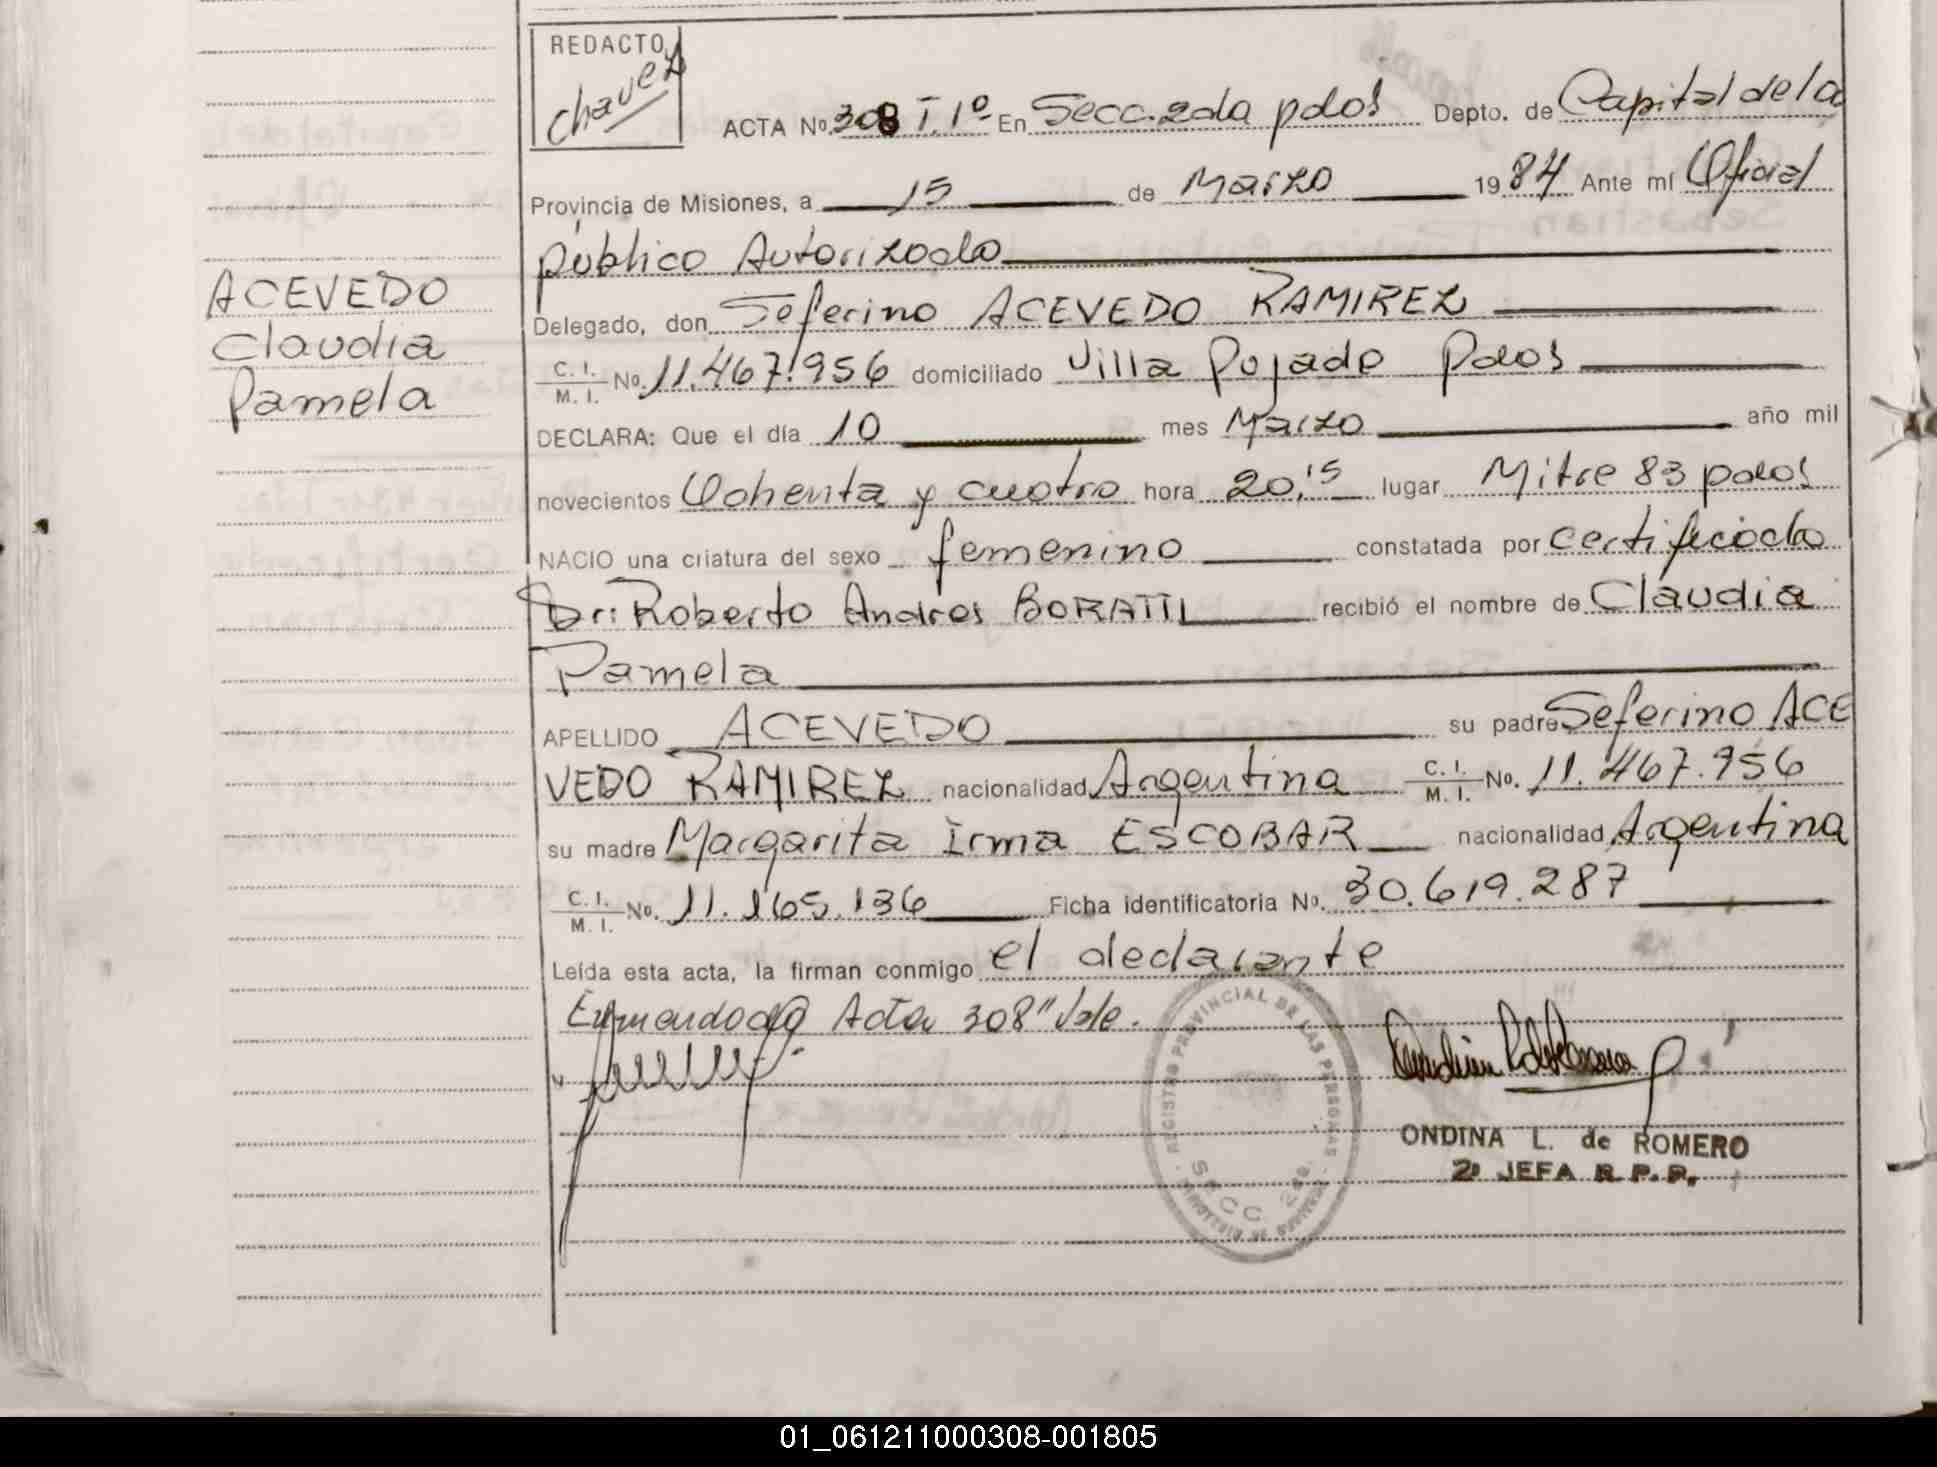 REDACTO
Chavez
ACTA No. 308 T. 1º En Secc. 2da pdas Depto. de Capital de la
Provincia de Misiones, a 15 de Marzo 1984 Ante mí Oficial
público Autorizado
Delegado, don Seferino ACEVEDO RAMIREZ
C. I.
M. I. No. 11.467.956 domiciliado Villa Pujado Pdas
DECLARA: Que el día 10 mes Marzo año mil
novecientos Ochenta y cuatro hora 20,15 lugar Mitre 83 pdas
NACIO una criatura del sexo femenino constatada por certificado
Dr: Roberto Andres BORATTI recibió el nombre de Claudia
Pamela
APELLIDO ACEVEDO su padre Seferino ACE
VEDO RAMIREZ nacionalidad Argentina C. I. M. I. No. 11.467.956
su madre Margarita Irma ESCOBAR nacionalidad Argentina
C. I. M. I. No. 11.165.136 Ficha identificatoria No. 30.619.287
Leída esta acta, la firman conmigo el declarante
Enmendado Acta 308" Vale.
ACEVEDO
Claudia
Pamela
REGISTRO PROVINCIAL DE LAS PERSONAS
SECC. 2da.
ONDINA L. de ROMERO
2ª JEFA R. P. P.
01_061211000308-001805